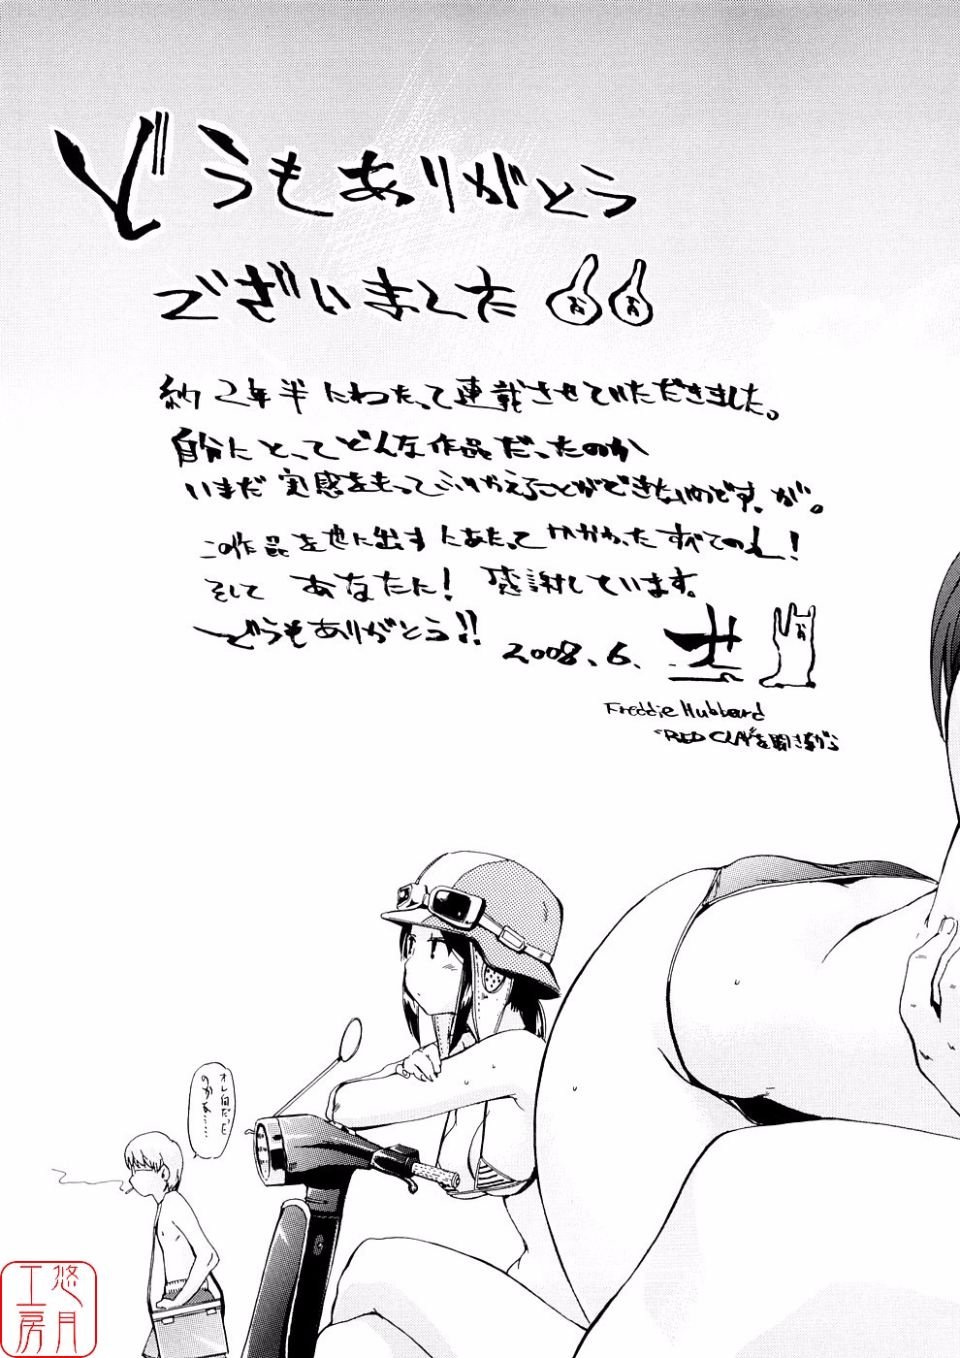 どうもありがとう
ございました
お お
約2年半にわたって連載させていただきました。
自分にとってどんな作品だったのか
いまだ実感をもってふりかえることができないのですが。
この作品を世に出すにあたってかかわったすべての人!
そして あなたに! 感謝しています。
どうもありがとう!!
2008.6.
お
Freddie Hubbard
"RED CLAY"を聞きながら
オレ何だった
のかな……
G
悠月
工房